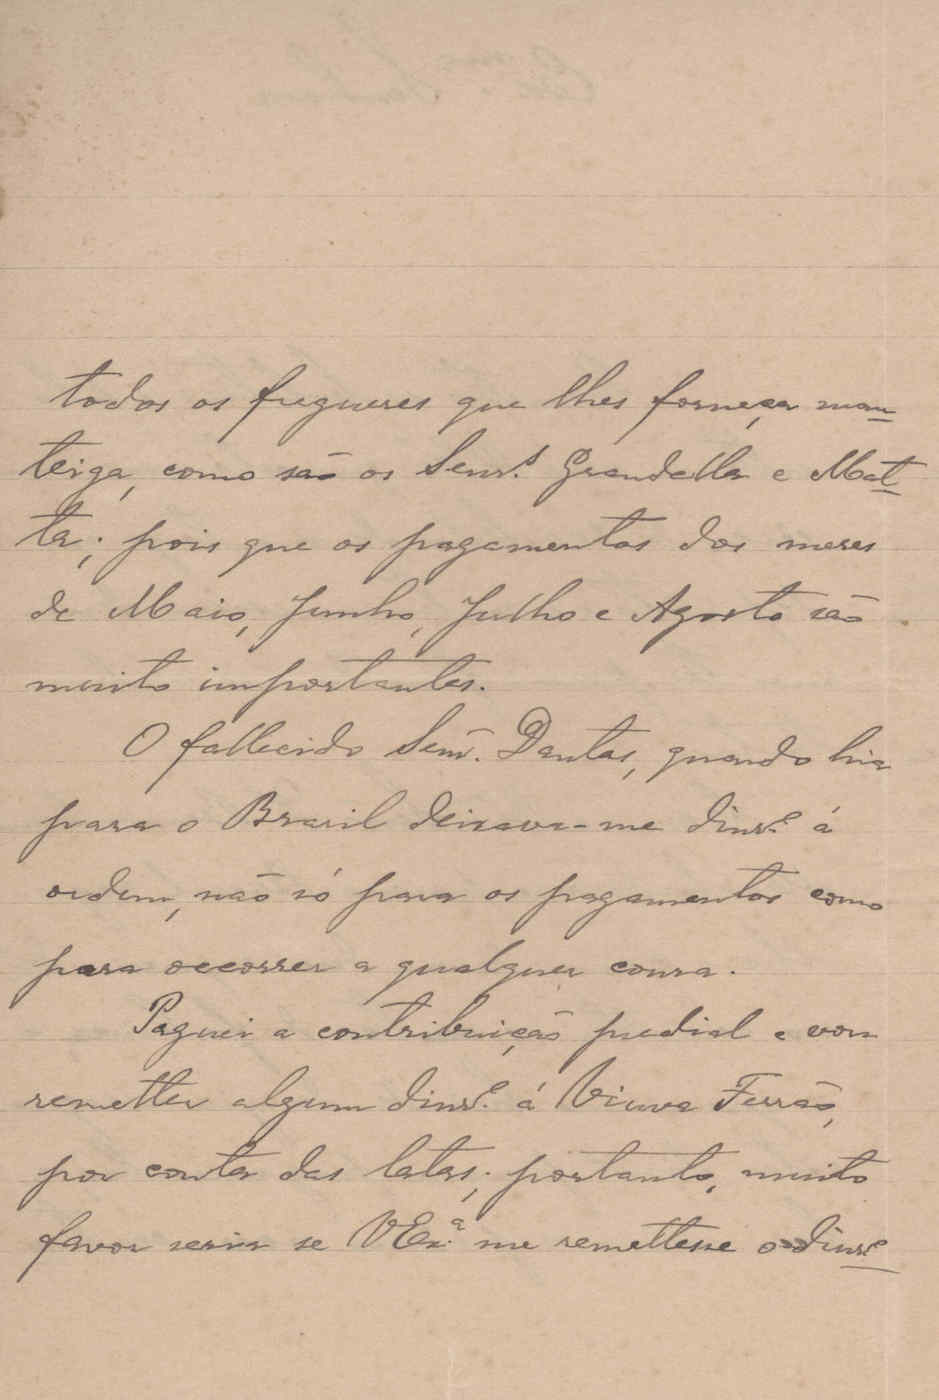 todos os freguezes que lhes forneça man-
teiga, como são os Senr.s Grandella e Mat-
ta; pois que os pagamentos dos mezes
de Maio, Junho, Julho e Agosto são
muito importantes.
O fallecido Senr. Dantas, quando hia
para o Brazil deixava-me dinr.º á
ordem, não só para os pagamentos como
para occorrer a qualquer cousa.
Paguei a contribuição predial e vou
remetter algum dinr.º á Viuva Ferrão,
por conta das latas; portanto, muito
favor seria se VEx.ª me remettesse o dinr.º